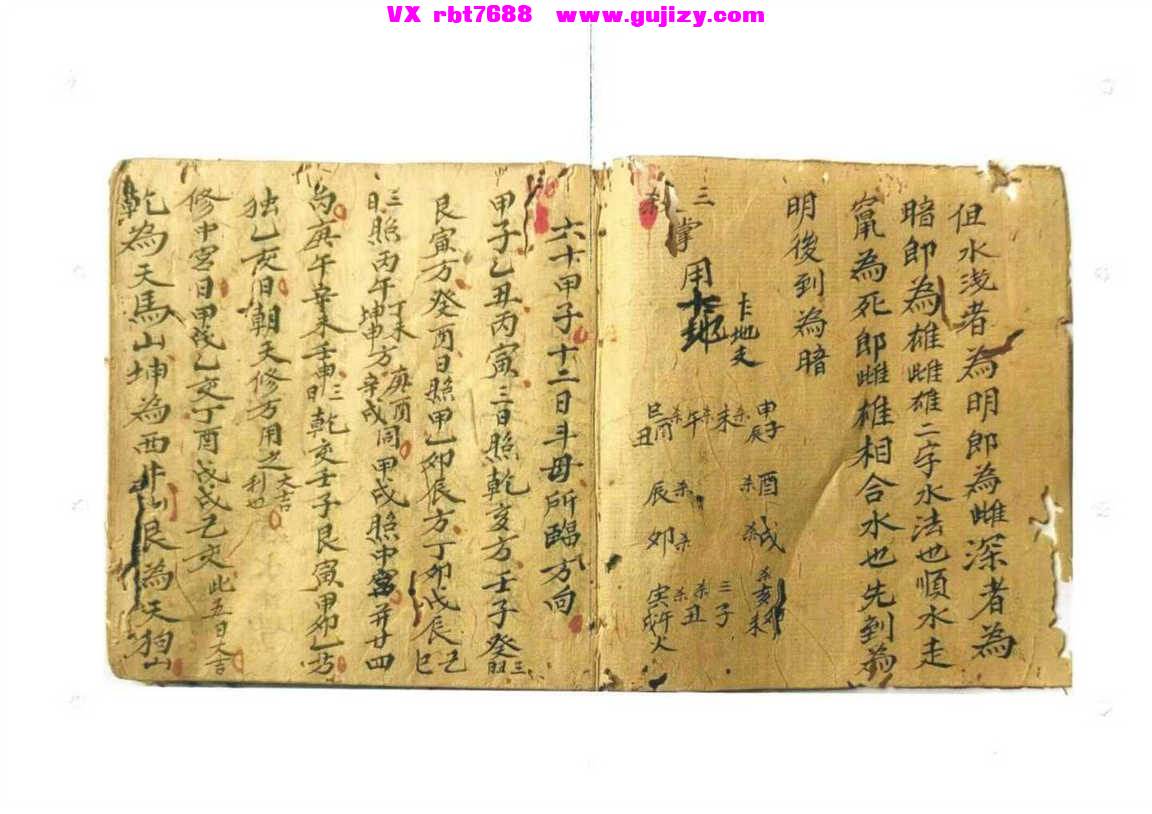 VX rbt7688 www.gujizy.com
但水浅者為明郎為雌深者為
暗即為雄雌雄二字水法也順水走
竄為死郎雌雄相合水也先到為
明後到為暗
三
煞掌用
十地支
申子辰 煞未 煞午 煞 巳酉丑
煞酉 煞辰
煞戌 煞卯
煞亥卯未 三子 煞丑 煞寅午戌火
六十甲子十二日斗母所臨方向
甲子乙丑丙寅三日照乾亥方壬子癸丑三
艮寅方癸酉日照甲乙卯辰方丁卯戊辰己巳
三日照丙午丁未坤申方庚酉辛戌同甲戌照中宮并廿四
向庚午辛未壬申三日乾亥壬子艮寅甲卯乙方
独乙亥日朝天修方用之大吉利也
修中宮日甲戌乙亥丁酉戊戌己亥此五日大吉
乾為天馬山坤為西非山艮為天狗山